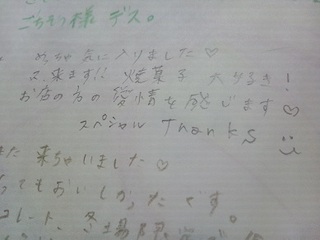 ごちそう様 デス。
めっちゃ 気に入りました♡
又来ます!! 焼菓子 大好き!
お店の方の愛情を感じます♡
スペシャル Thanks
また 来ちゃいました♡
ってもおいしかったです。
コレート、冬場限定が